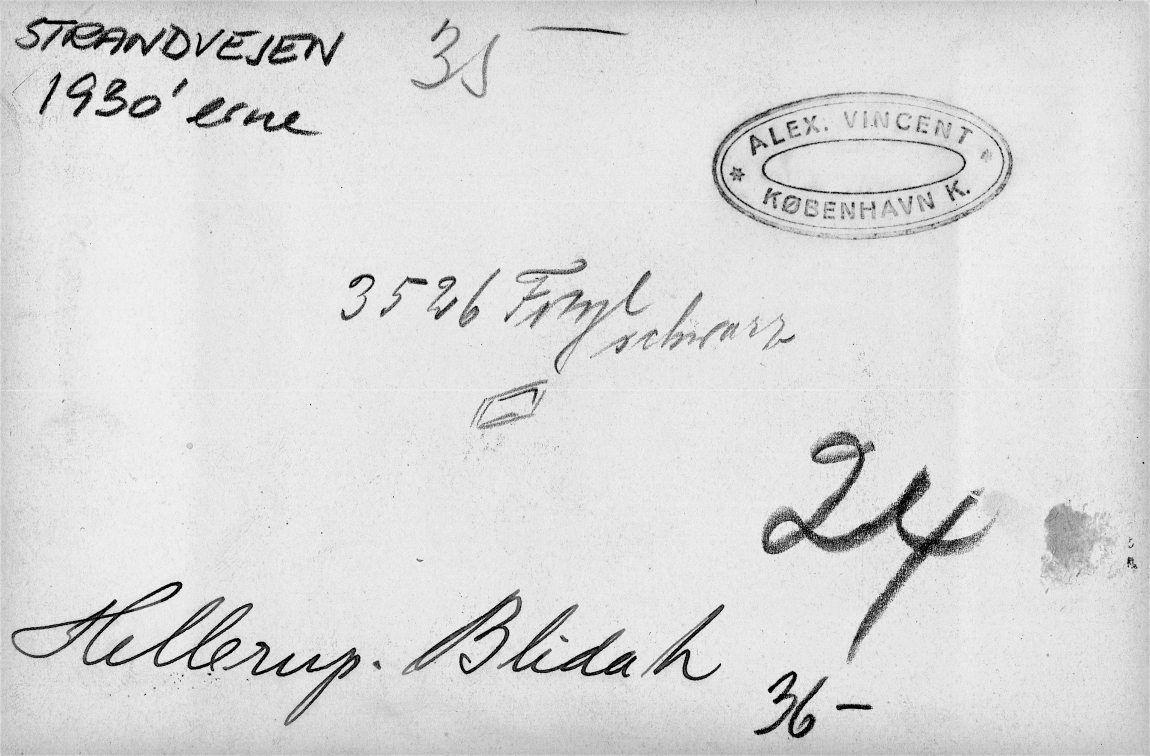 STRANDVEJEN
1930'erne
35 —
ALEX. VINCENT
KØBENHAVN K.
3526
schwarz
24
Hellerup. Blidah
36 –